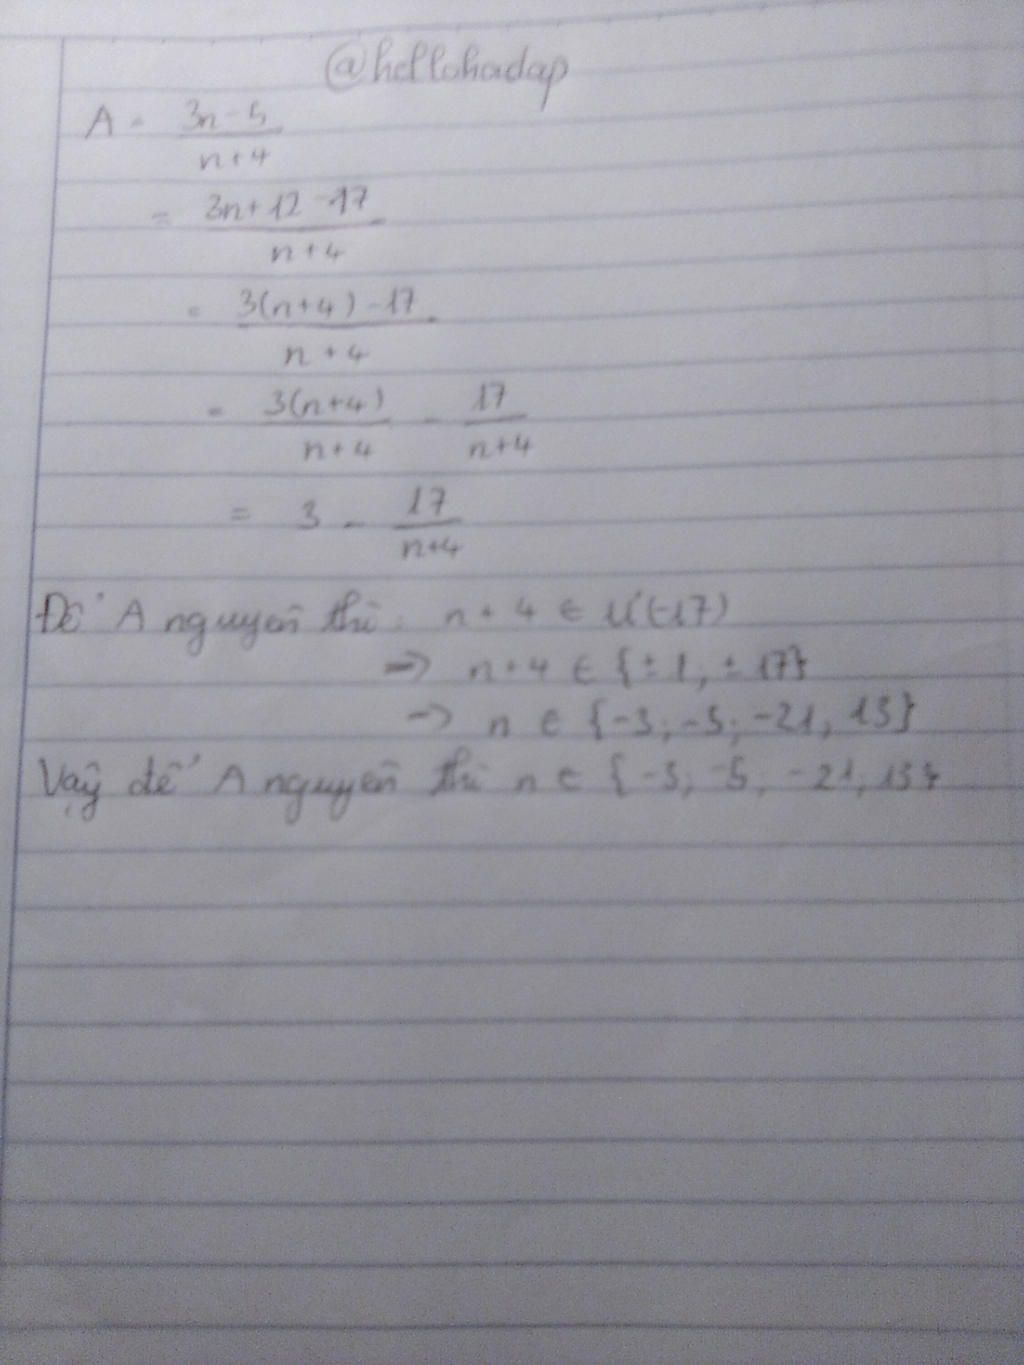 @hellohadap
A = \frac{3n-5}{n+4}
= \frac{3n+12-17}{n+4}
= \frac{3(n+4)-17}{n+4}
= \frac{3(n+4)}{n+4} - \frac{17}{n+4}
= 3 - \frac{17}{n+4}
Để A nguyên thì: n+4 ∈ Ư(-17)
=> n+4 ∈ {±1; ±17}
=> n ∈ {-3; -5; -21; 13}
Vậy để A nguyên thì n ∈ {-3; -5; -21; 13}